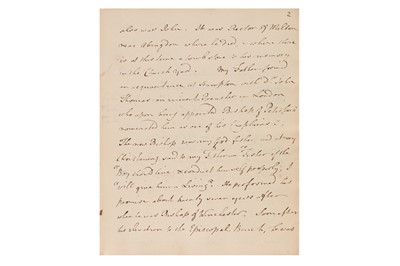 2
also was John. He was Rector of Milton
near Abingdon where he died & where there
is at this time a tomb stone to his memory
in the Church Yard. My Father formed
an acquaintance at Hampton with Dr. John
Thomas an eminent Preacher in London
who upon being appointed Bishop of Peterboro'
nominated him as one of his Chaplains.
Thomas Bishop was my God father and at my
Christening said to my Father
"My should live & conduct himself properly, I
"will give him a living". He performed his
promise about twenty seven years after
when he was Bishop of Winchester. Soon after
his to the Episcopal Bench, he was